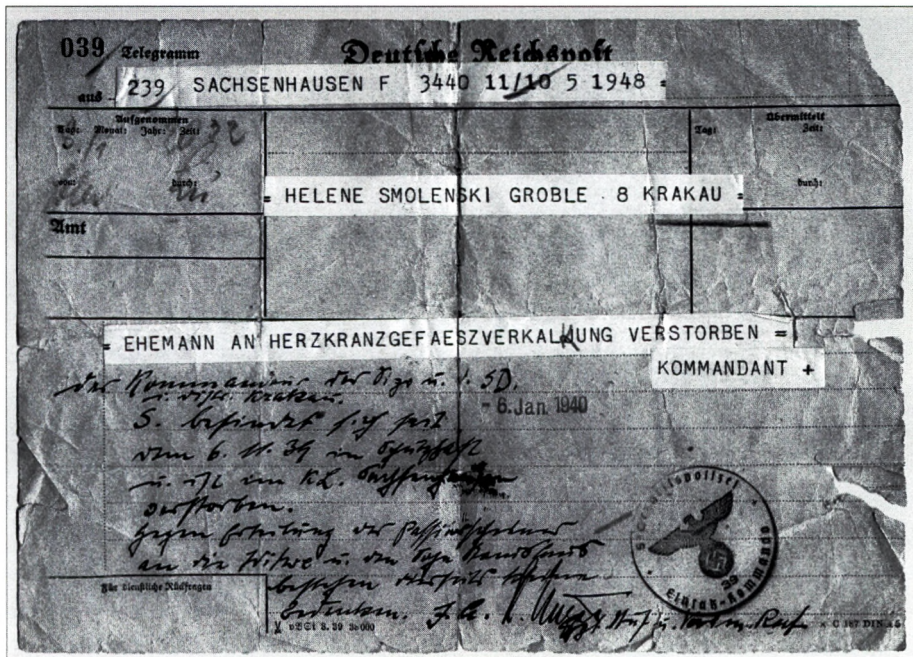 039 Telegramm Deutsche Reichspost
aus 239 SACHSENHAUSEN F 3440 11/10 5 1948 =
Aufgenommen
Tag: Monat: Jahr: Zeit:
von: durch:
Übermittelt
Tag: Zeit:
durch:
= HELENE SMOLENSKI GROBLE 8 KRAKAU =
Amt
= EHEMANN AN HERZKRANZGEFAESZVERKALKUNG VERSTORBEN =
KOMMANDANT +
Der Kommandeur der Sipo u. d. SD.
i. Distr. Krakau.
- 6. Jan 1940
S. befindet sich seit
dem 6. 11. 39 in Schutzhaft
u. ist im KL. Sachsenhausen
verstorben.
Gegen Erteilung der Passierscheine
an die Witwe u. den Sohn
bestehen keine
Bedenken.
Sicherheitspolizei
Einsatz-Kommando
Für dienstliche Rückfragen
C 187 DIN A 5